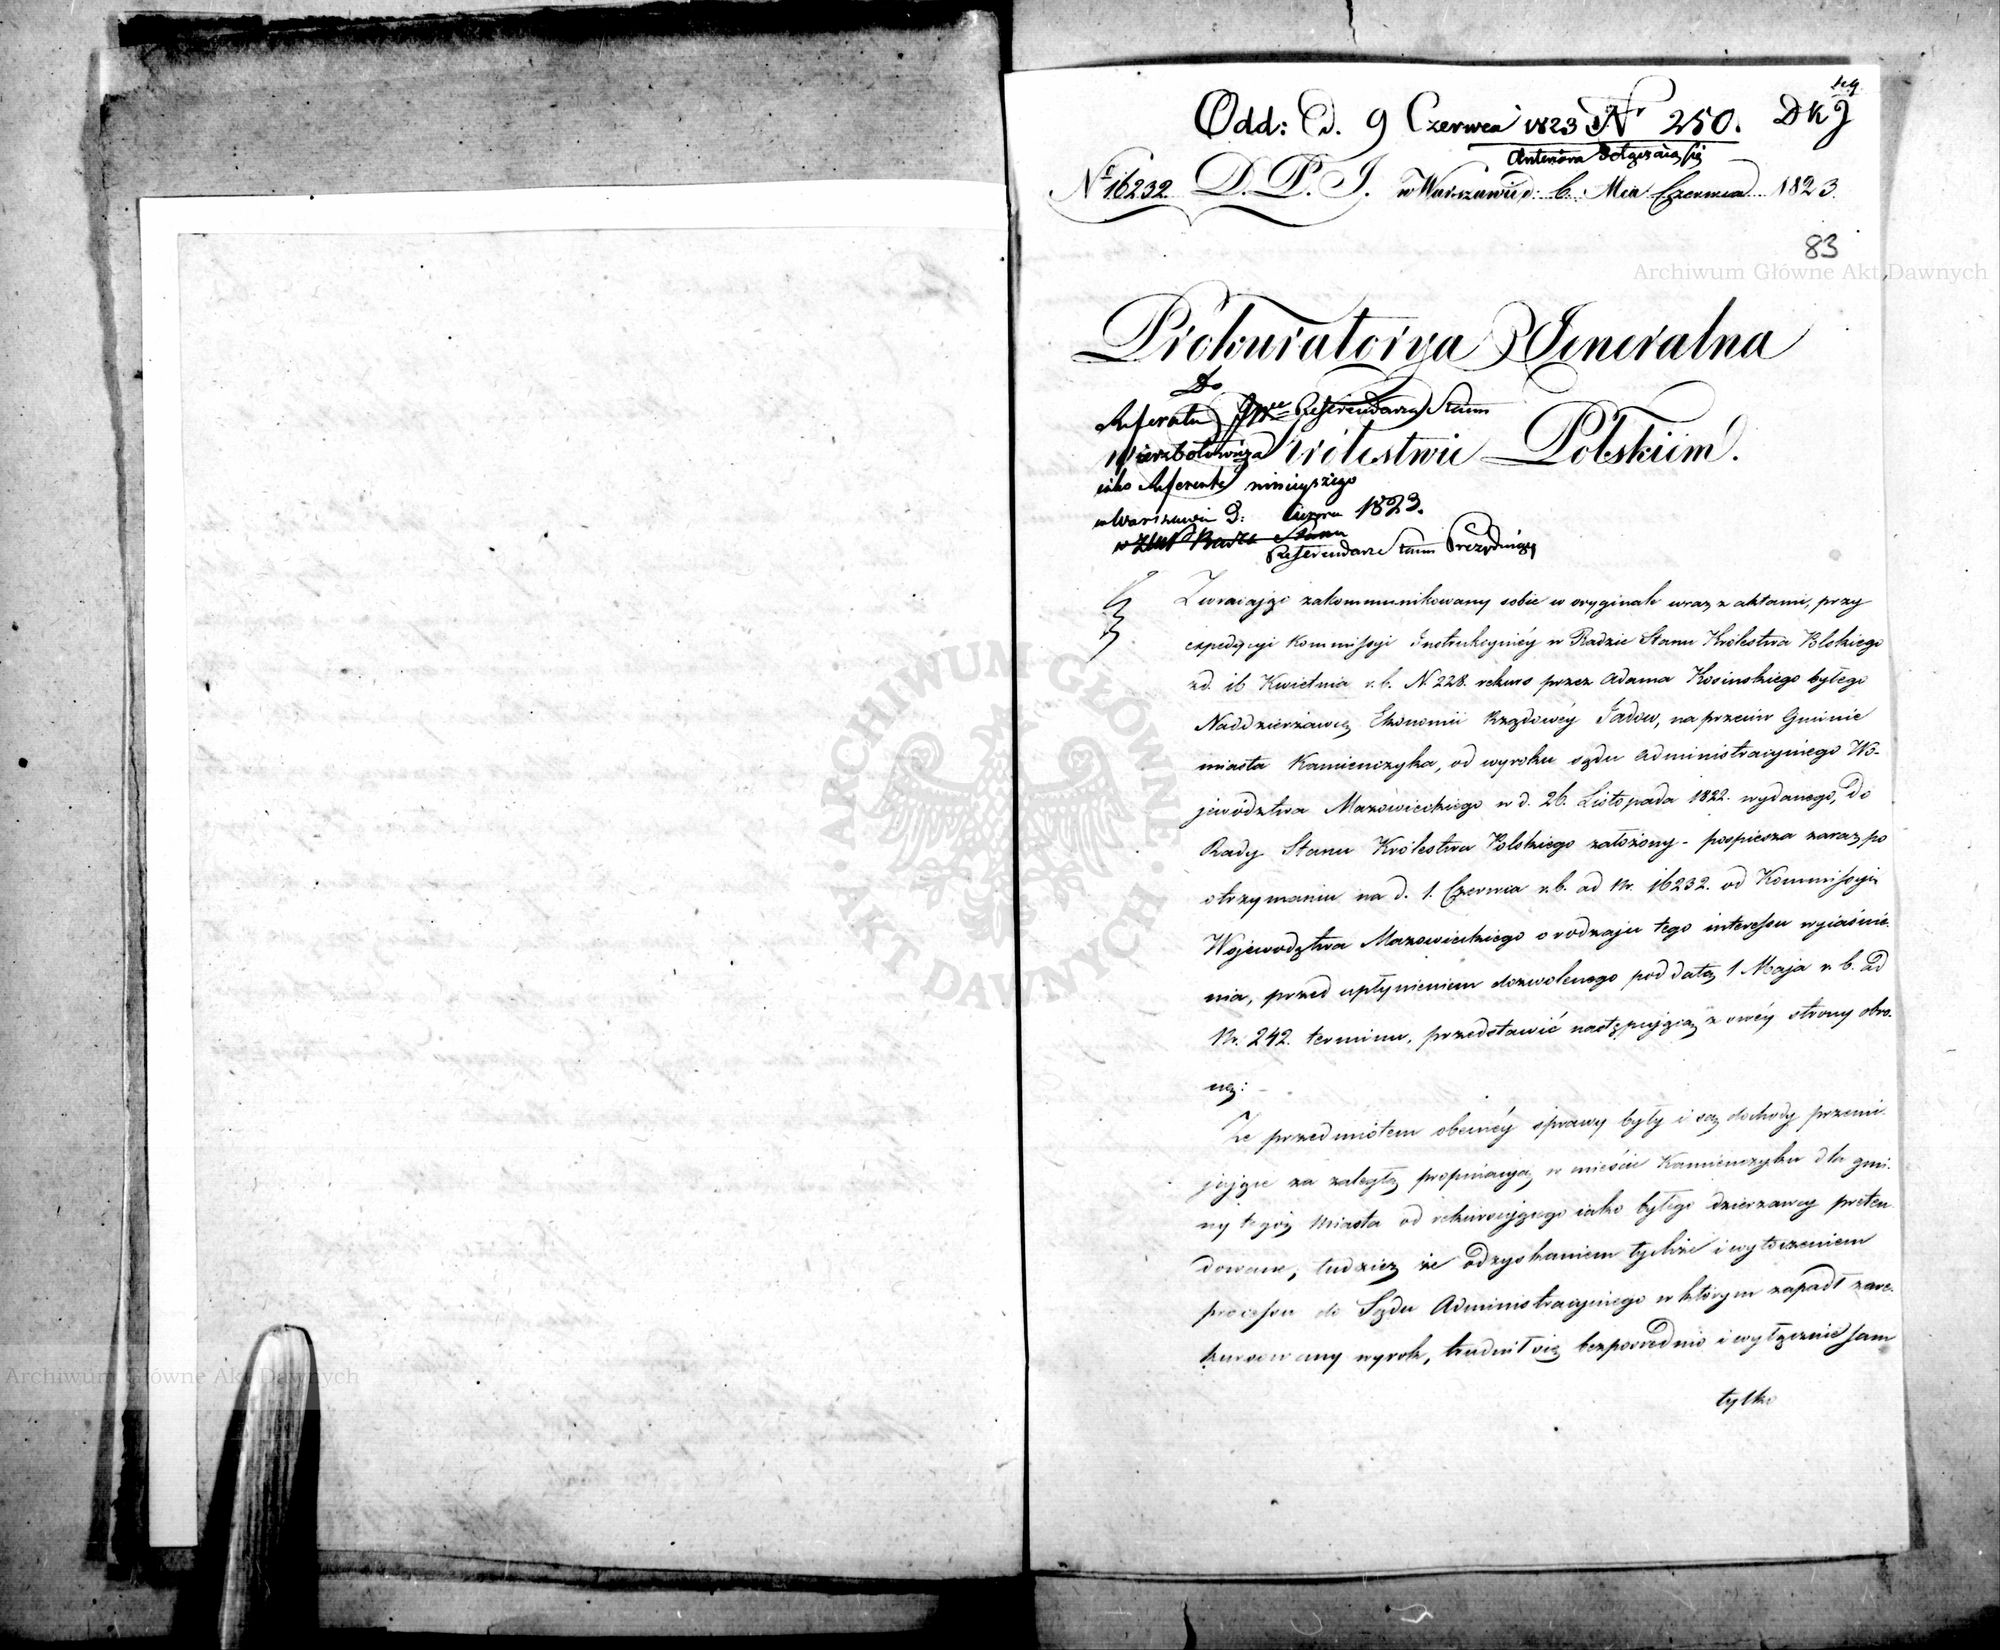 Odd: d. 9 Czerwca 1823 Nr 250. DKJ
Anteriora dołączają się
Nr 16232. D. P. J. w Warszawie d: 6. Mca Czerwca 1823
83
Archiwum Główne Akt Dawnych
Prokuratorya Jeneralna
Do
Referatu JWgo Referendarza Stanu
Królestwie Polskiém.
iako Referenta niniejszego
w Warszawie d: Czerw 1823.
w Zast Radca Stanu
Referendarz Stanu Prezydujący
Zwracając zakommunikowany sobie w oryginale wraz z aktami, przy
expedycyi Kommissyi Instrukcyinéy w Radzie Stanu Królestwa Polskiego
z d. 16 Kwietnia r. b. N. 228. rekurs przez Adama Kosinskiego byłego
Naddzierżawcę Ekonomii Rządowéy Jadow, na przeciw Gminie
miasta Kamienczyka, od wyroku sądu Administracyinego Wo-
jewództwa Mazowieckiego w d. 26. Listopada 1822. wydanego, do
Rady Stanu Królestwa Polskiego założony - pospiesza zaraz po
otrzymaniu na d. 1. Czerwca r. b. ad Nr. 16232. od Kommissyi
Wojewodztwa Mazowieckiego o rodzaju tego interessu wyiaśnie-
nia, przed upłynieniem dozwolonego pod datą 1 Maja r. b. ad
Nr. 242. terminu, przedstawić następującą z swéy strony obro-
nę: -
Że przedmiotem obecnéy sprawy były i są dochody przemi-
jające za zaległą propinacyą w mieście Kamienczyku dla gmi-
ny tegoż Miasta od rekurującego iako byłego dzierzawcy preten-
dowane, tudzież że odzyskaniem tychże i wytoczeniem
processu do Sądu Administracyinego w którym zapadł zare-
kurowany wyrok, trudnił się bezpośrednio i wyłącznie sam
tylko
ARCHIWUM GŁÓWNE AKT DAWNYCH
Archiwum Główne Akt Dawnych